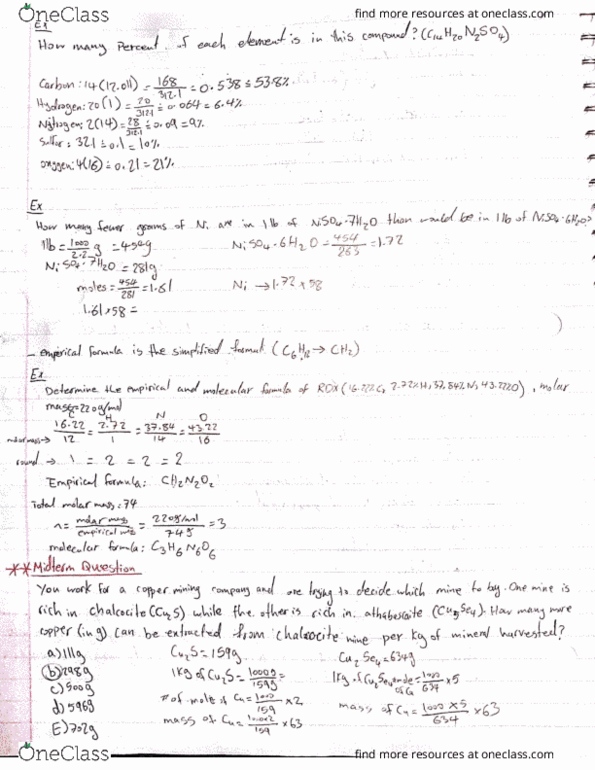 OneClass
find more resources at oneclass.com
Ex
How many Percent of each element is in this compound? (C14H20N2SO4)
Carbon: 14(12.011) = 168/312.1 = 0.538 ≐ 53.8%
Hydrogen: 20(1) = 20/312.1 ≐ 0.064 = 6.4%
Nitrogen: 2(14) = 28/312.1 ≐ 0.09 = 9%
Sulfor: 32.1 ≐ 0.1 = 10%
oxygen: 4(16) ≐ 0.21 = 21%
Ex
How many fewer grams of Ni are in 1 lb of NiSO4·7H2O than would be in 1 lb of NiSO4·6H2O?
1lb = 1000/2.2 g = 454g NiSO4·6H2O = 454/263 = 1.72
NiSO4·7H2O = 281g
moles = 454/281 = 1.61 Ni → 1.72 × 58
1.61 × 58 =
- emperical formula is the simplified formul (C6H12 → CH2)
Ex
Determine the empirical and molecular formula of RDX (16.22%C, 2.72%H, 37.84%N, 43.22%O), molar
mass = 220g/mol
C H N O
16.22/12 = 2.72/1 = 37.84/14 = 43.22/16
molar mass →
round → 1 = 2 = 2 = 2
Empirical formula: CH2N2O2
Total molar mass: 74
n = molar mass/empirical = 220g/mol/74g = 3
molecular formula: C3H6N6O6
** Midterm Question
You work for a copper mining company and are trying to decide which mine to by. One mine is
rich in chalcocite (Cu2S) while the other is rich in (Cu5Se4). How many more
copper (in g) can be extracted from chalcocite mine per kg of mineral harvested?
a) 111g Cu2S = 159g Cu5Se4 = 634g
b) 298g 1kg of Cu2S = 1000g/159g = 1kg of Cu5Se4 1000/634 × 5
c) 500g # of mole of Cu = 1000/159 × 2
d) 596g mass of Cu = 1000×2/159 × 63 mass of Cu = 1000×5/634 × 63
E) 702g
OneClass
find more resources at oneclass.com